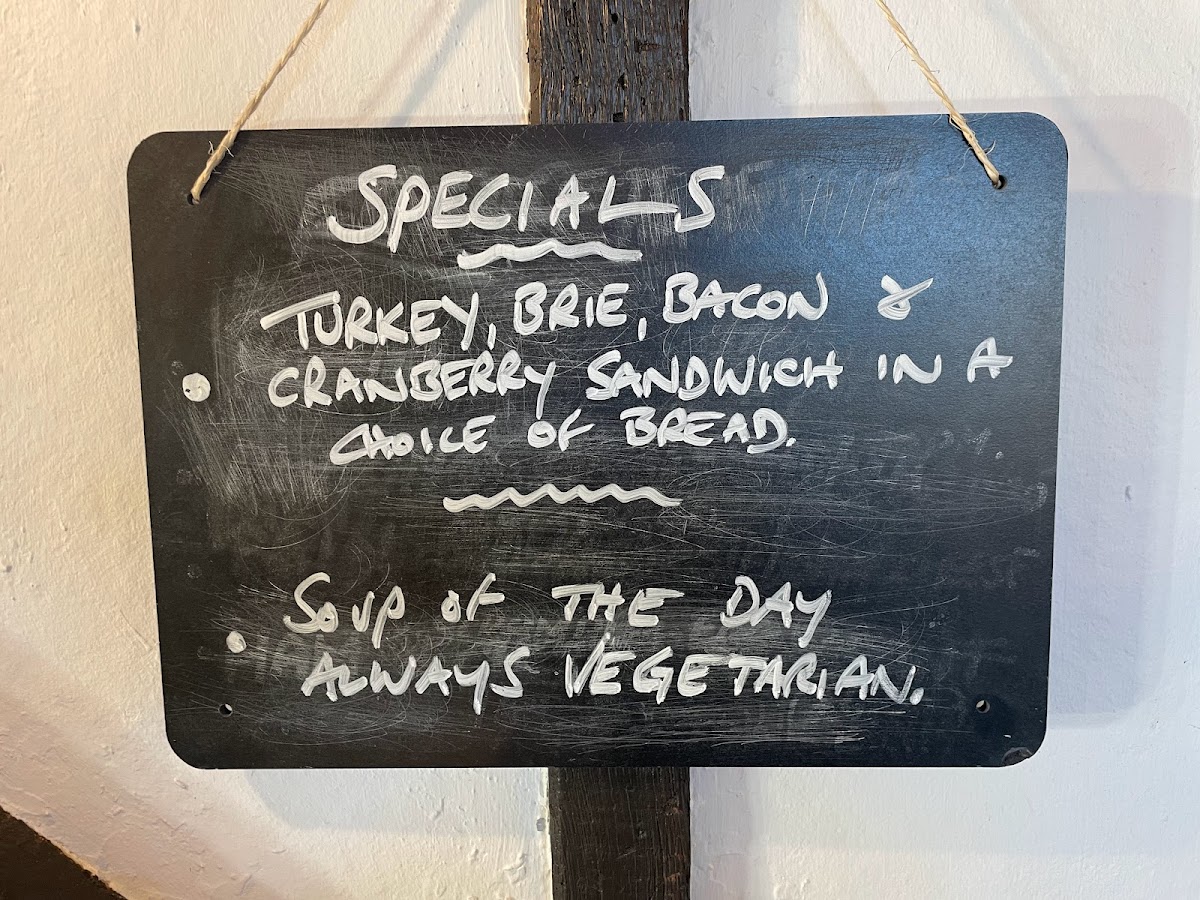 SPECIALS
TURKEY, BRIE, BACON &
CRANBERRY SANDWICH IN A
CHOICE OF BREAD.
SOUP OF THE DAY
ALWAYS VEGETARIAN.